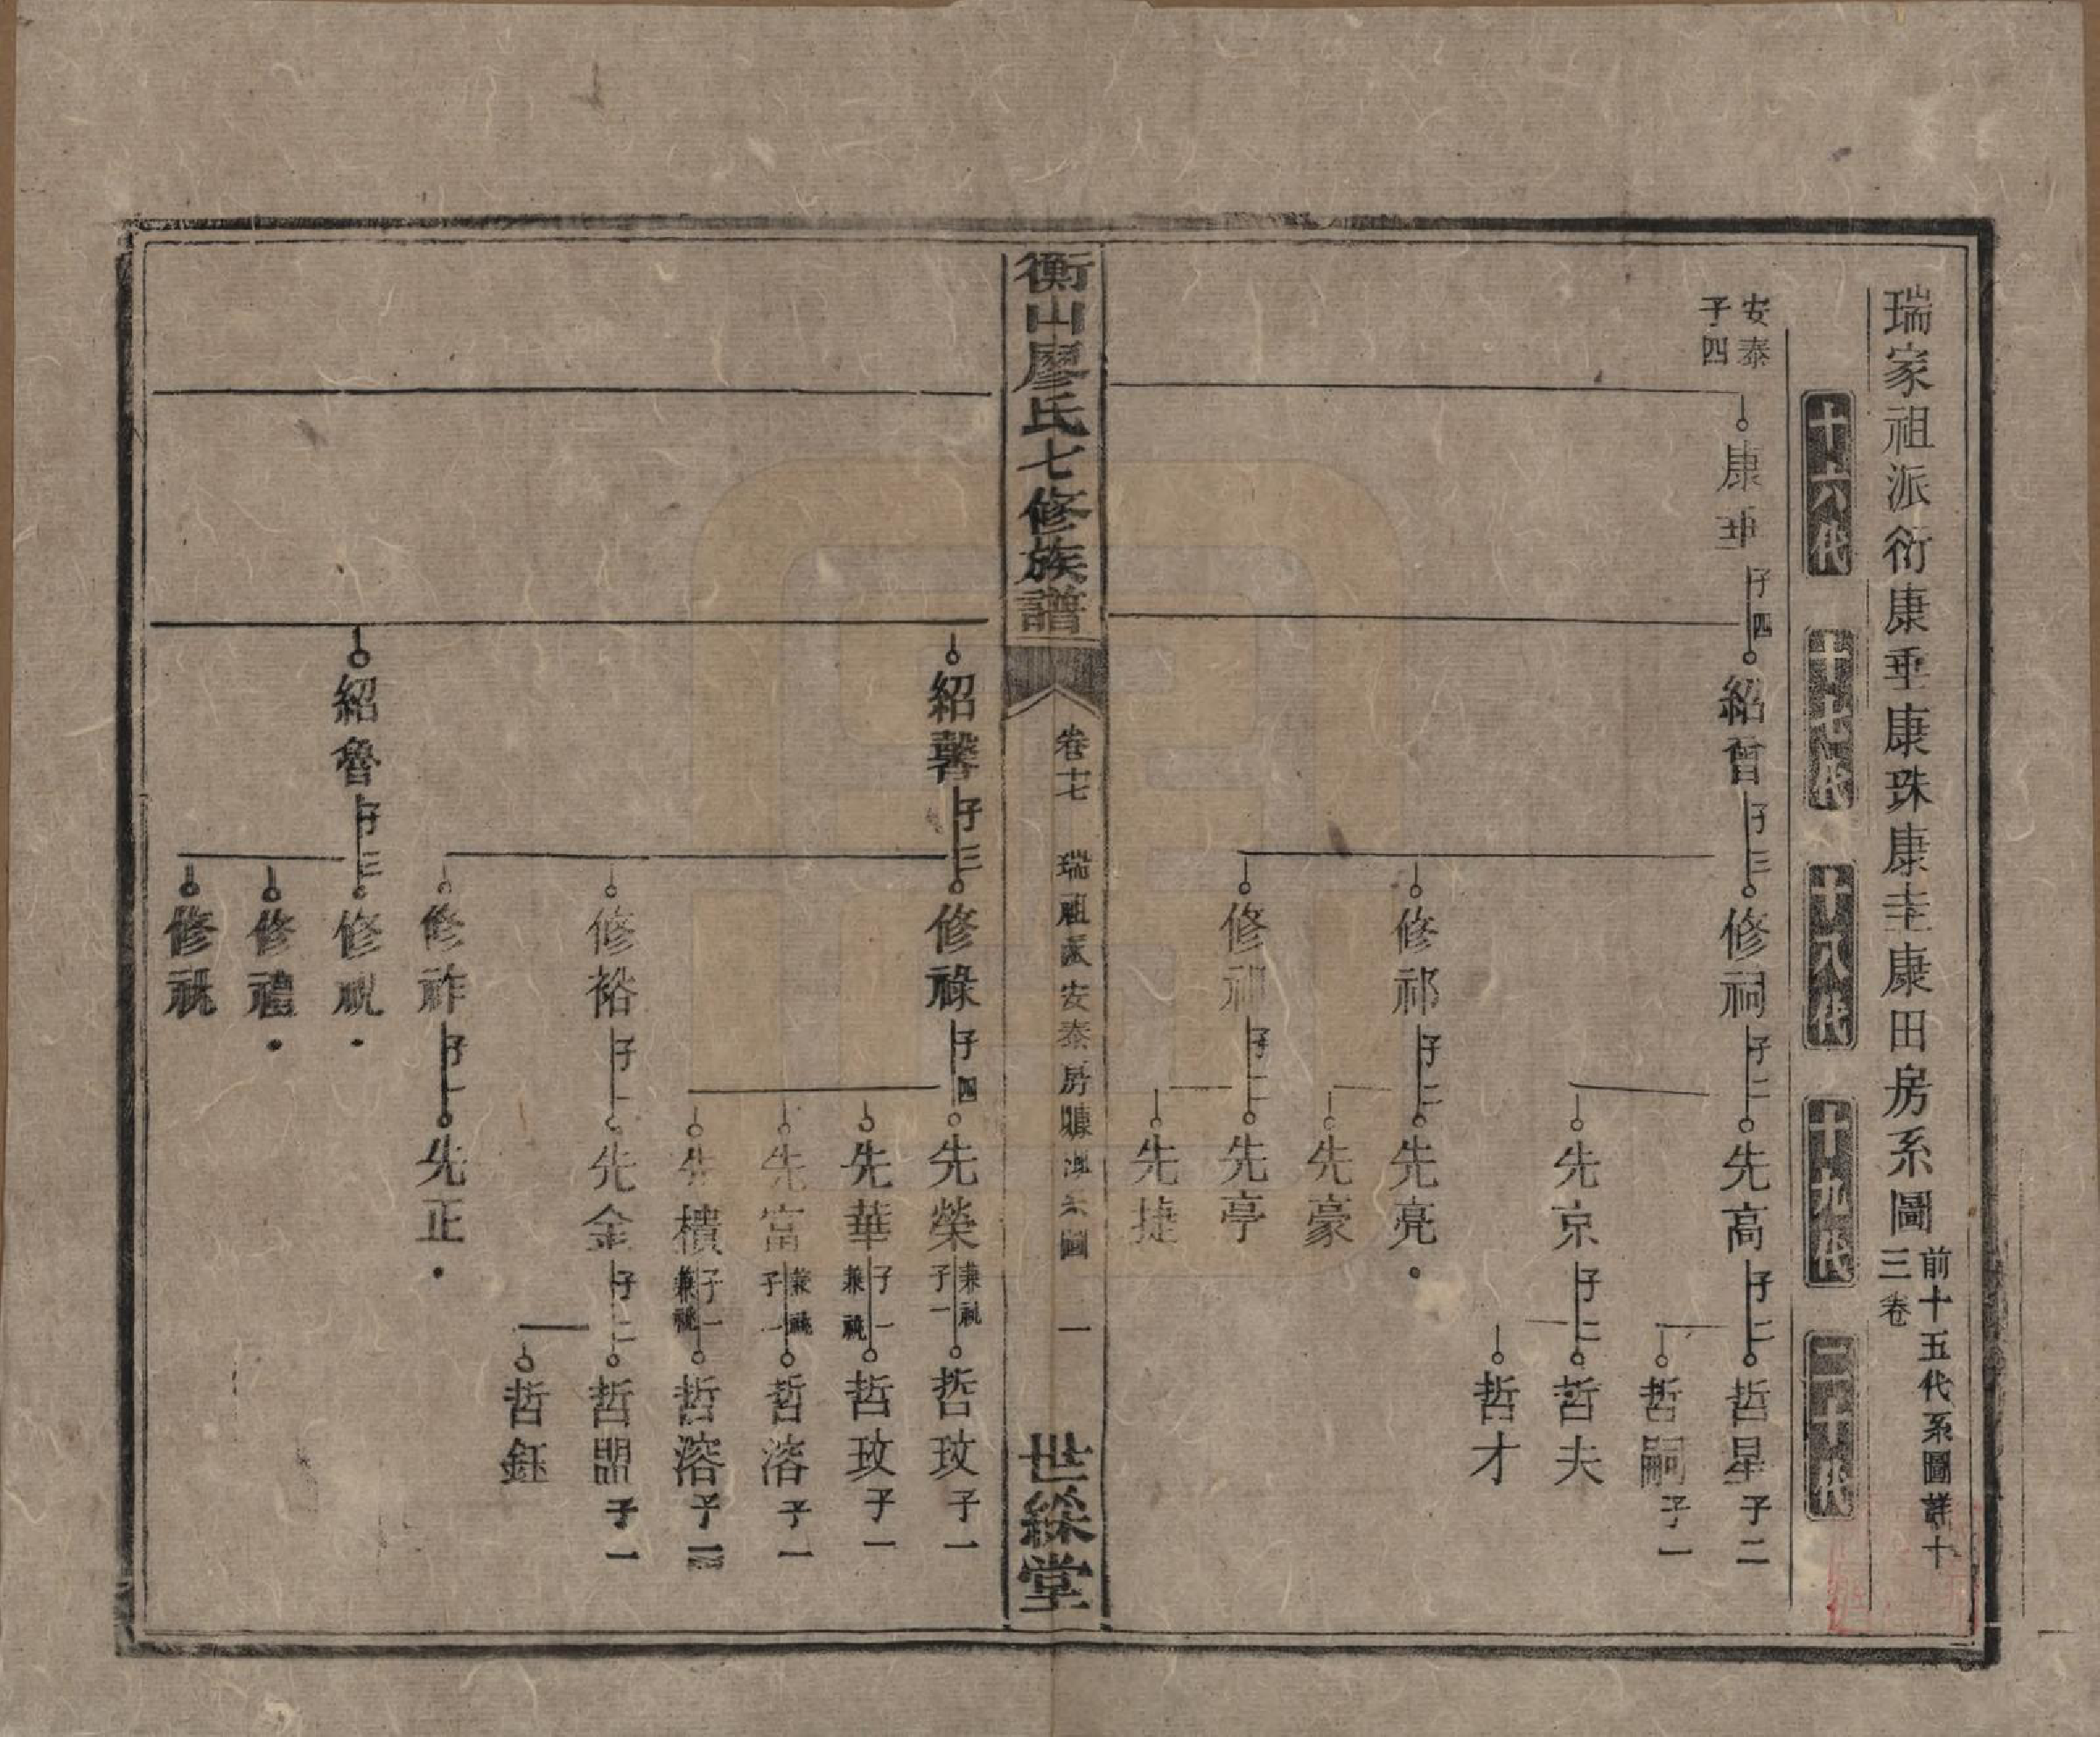 瑞家祖派衍康垂康珠康圭康田房系圖
前十五代系圖詳十
三卷
十六代
十七代
十八代
十九代
二十代
安泰
子四
康垂
子四
紹曾
子三
修祠
子二
先高
子二
哲星
子二
哲嗣
子一
先京
子二
哲夫
哲才
修祁
子二
先亮
先豪
修
子二
先亭
先捷
衡山廖氏七修族譜
卷十七
瑞祖派安泰房
圖
一
世綵堂
紹馨
子三
修祿
子四
先榮
兼祧
子一
哲玫
子一
先華
子一
兼祧
哲玫
子一
先富
兼祧
子一
哲溶
子一
先樻
子一
兼祧
哲溶
子一
修裕
子一
先金
子二
哲盟
子一
哲鈺
修祚
子一
先正
紹魯
子三
修祝
修禮
修祧